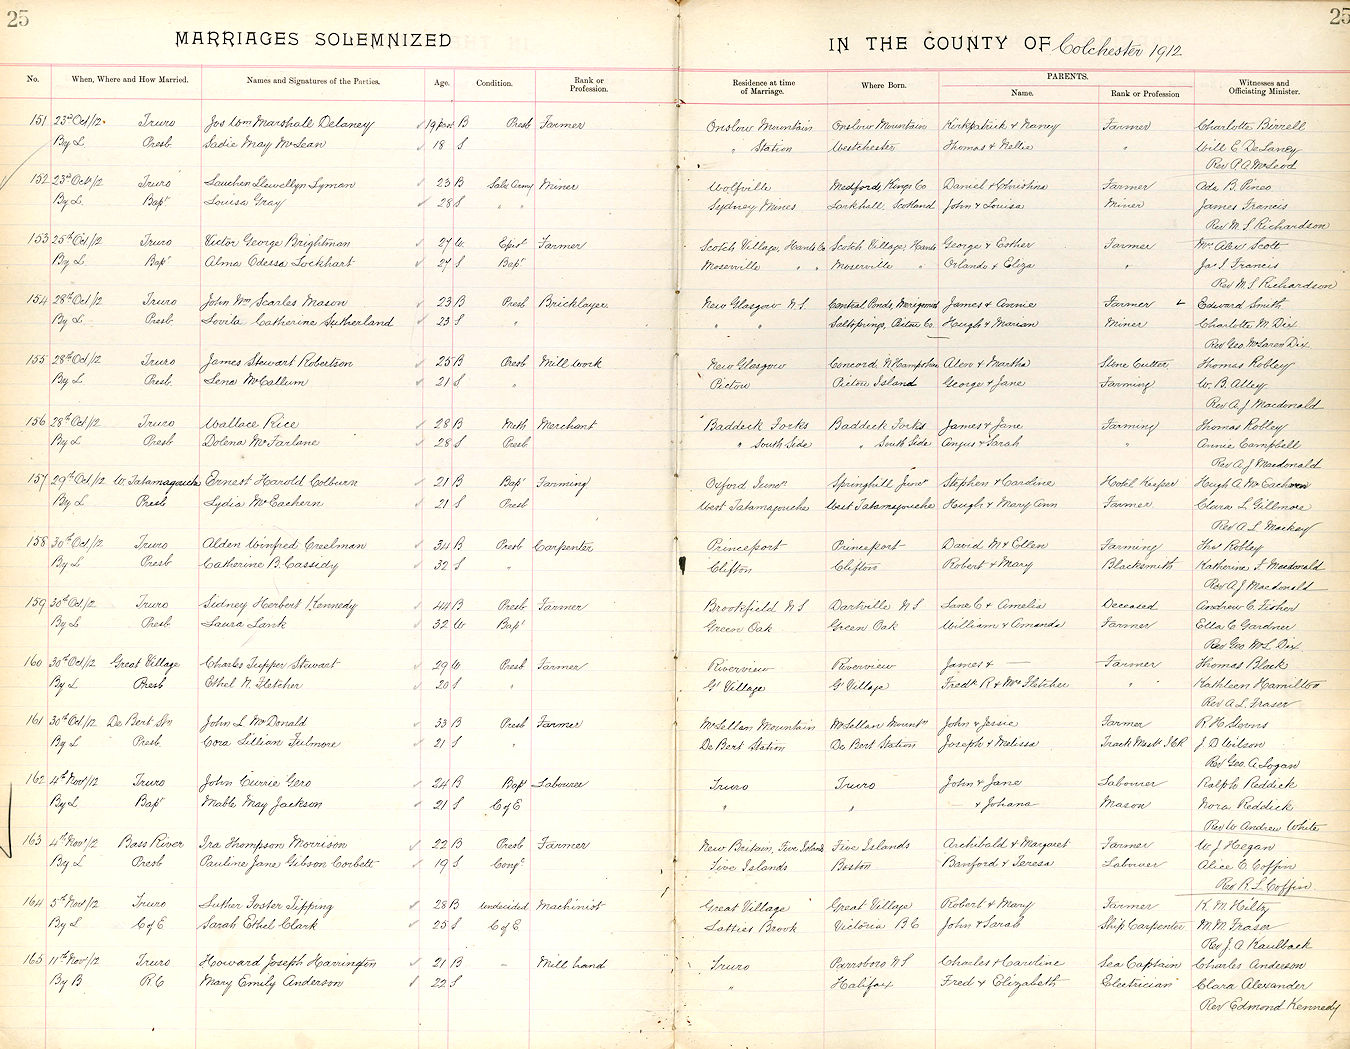 25
25
MARRIAGES SOLEMNIZED IN THE COUNTY OF Colchester 1912
No. When, Where and How Married. Names and Signatures of the Parties. Age. Condition. Rank or Profession. Residence at time of Marriage. Where Born. PARENTS. Name. Rank or Profession Witnesses and Officiating Minister.
151 23rd Oct/12 Truro Jos Wm Marshall Delaney 19 B Presb Farmer Onslow Mountain Onslow Mountain Kirkpatrick & Nancy Farmer Charlotte Birrell
By L Presb Sadie May McLean 18 S " Station Westchester Thomas & Nellie " Will E DeLaney
Rev P A McLeod
152 23rd Oct/12 Truro Lauchen Llewellyn Lyman 23 B Salv Army Miner Wolfville Medford, Kings Co Daniel & Christina Farmer Ada B. Pineo
By L. Bapt Louisa Gray 28 S " " Sydney Mines Larkhall, Scotland John & Louisa Miner James Francis
Rev M S Richardson
153 25th Oct/12 Truro Victor George Brightman 27 W. Epist Farmer Scotch Village, Hants Co Scotch Village, Hants George & Esther Farmer Mrs Alex Scott
By L Bapt Alma Odessa Lockhart 27 S Bapt Moserville " " Moserville " Orlando & Eliza " Jas I Francis
Rev M S Richardson
154 28th Oct/12 Truro John Wm Searles Mason 23 B Presb Bricklayer New Glasgow N.S. Central Ponds, Merigomish James & Annie Farmer Edward Smith
By L Presb Lovila Catherine Sutherland 23 S " " " Saltsprings, Pictou Co. Hough & Marian Miner Charlotte M. Dix
Rev Geo McLaren Dix
155 28th Oct/12 Truro James Stewart Robertson 25 B Presb Mill work New Glasgow Concord N Hampshire Alex & Martha Stone Cutter Thomas Robley
By L. Presb. Lena McCallum 21 S " Pictou Pictou Island George & Jane Farming W. B. Alley
Rev A. J Macdonald
156 28th Oct/12 Truro Wallace Rice 28 B Meth Merchant Baddeck Forks Baddeck Forks James & Jane Farming Thomas Robley
By L Presb Dolena McFarlane 28 S Presb " South Side " South Side Angus & Sarah " Annie Campbell
Rev A. J Macdonald
157 29th Oct/12 W. Tatamagouche Ernest Harold Colburn 21 B Bapt Farming Oxford Junct. Springhill Junct Stephen & Cardine Hotel Keeper Hugh A McEachren
By L Presb Lydia McEachern 21 S Presb West Tatamagouche West Tatamagouche Hugh & Mary Ann Farmer Clara L Gillmore
Rev A L Mackay
158 30th Oct/12 Truro Alden Winfred Creelman 34 B Presb Carpenter Princeport Princeport David M & Ellen Farming Thos Robley
By L Presb Catherine B. Cassidy 32 S " Clifton Clifton Robert & Mary Blacksmith Katherine F. Macdonald
Rev A J Macdonald
159 30th Oct/12 Truro Sidney Herbert Kennedy 44 B Presb. Farmer Brookfield N S Dartville N S Lane C & Amelia Deceased Andrew C. Fisher
By L Presb Laura Lank 32 W Bapt Green Oak Green Oak William & Amanda Farmer Ella C Gardner
Rev Geo McL Dix
160 30th Oct/12 Great Village Charles Tupper Stewart 29 W Presb Farmer Riverview Riverview James & — Farmer Thomas Black
By L Presb Ethel N. Fletcher 20 S " Gt Village Gt Village Fredk R & Mrs Fletcher " " Kathleen Hamilton
Rev A. L. Fraser
161 30th Oct/12 De Bert Stn John L McDonald 33 B Presb Farmer McLellan Mountain McLellan Mountn John & Jessie Farmer R H Storms
By L Presb. Cora Lillian Fulmore 21 S " De Bert Station De Bert Station Joseph & Melissa Track Mastr I.C.R J. D Wilson
Rev Geo. A Logan
162 4th Nov/12 Truro John Currie Gero 24 B Bapt Labourer Truro Truro John & Jane Labourer Ralph Reddick
By L Bapt Mable May Jackson 21 S C of E " " — & Johana Mason Nora Reddick
Rev W Andrew White
163 4th Nov/12 Bass River Ira Thompson Morrison 22 B Presb Farmer New Britain, Five Islands Five Islands Archibald & Margaret Farmer W. J Hegan
By L Presb Pauline Jane Gibson Corbett 19 S Congl Five Islands Boston Banford & Teresa Labourer Alice C. Coffin
Rev R. L. Coffin
164 5th Nov/12 Truro Luther Foster Tipping 28 B undecided Machinist Great Village Great Village Robert & Mary Farmer K. M. Hiltz
By L C of E Sarah Ethel Clark 25 S C of E Latties Brook Victoria B C John & Sarah Ship Carpenter M. M. Fraser
Rev J. A Kaulback
165 11th Nov/12 Truro Howard Joseph Harrington 21 B – Mill hand Truro Parrsboro N.S Charles & Caroline Sea Captain Charles Anderson
By B R C Mary Emily Anderson 22 S " Halifax Fred & Elizabeth Electrician Clara Alexander
Rev Edmond Kennedy